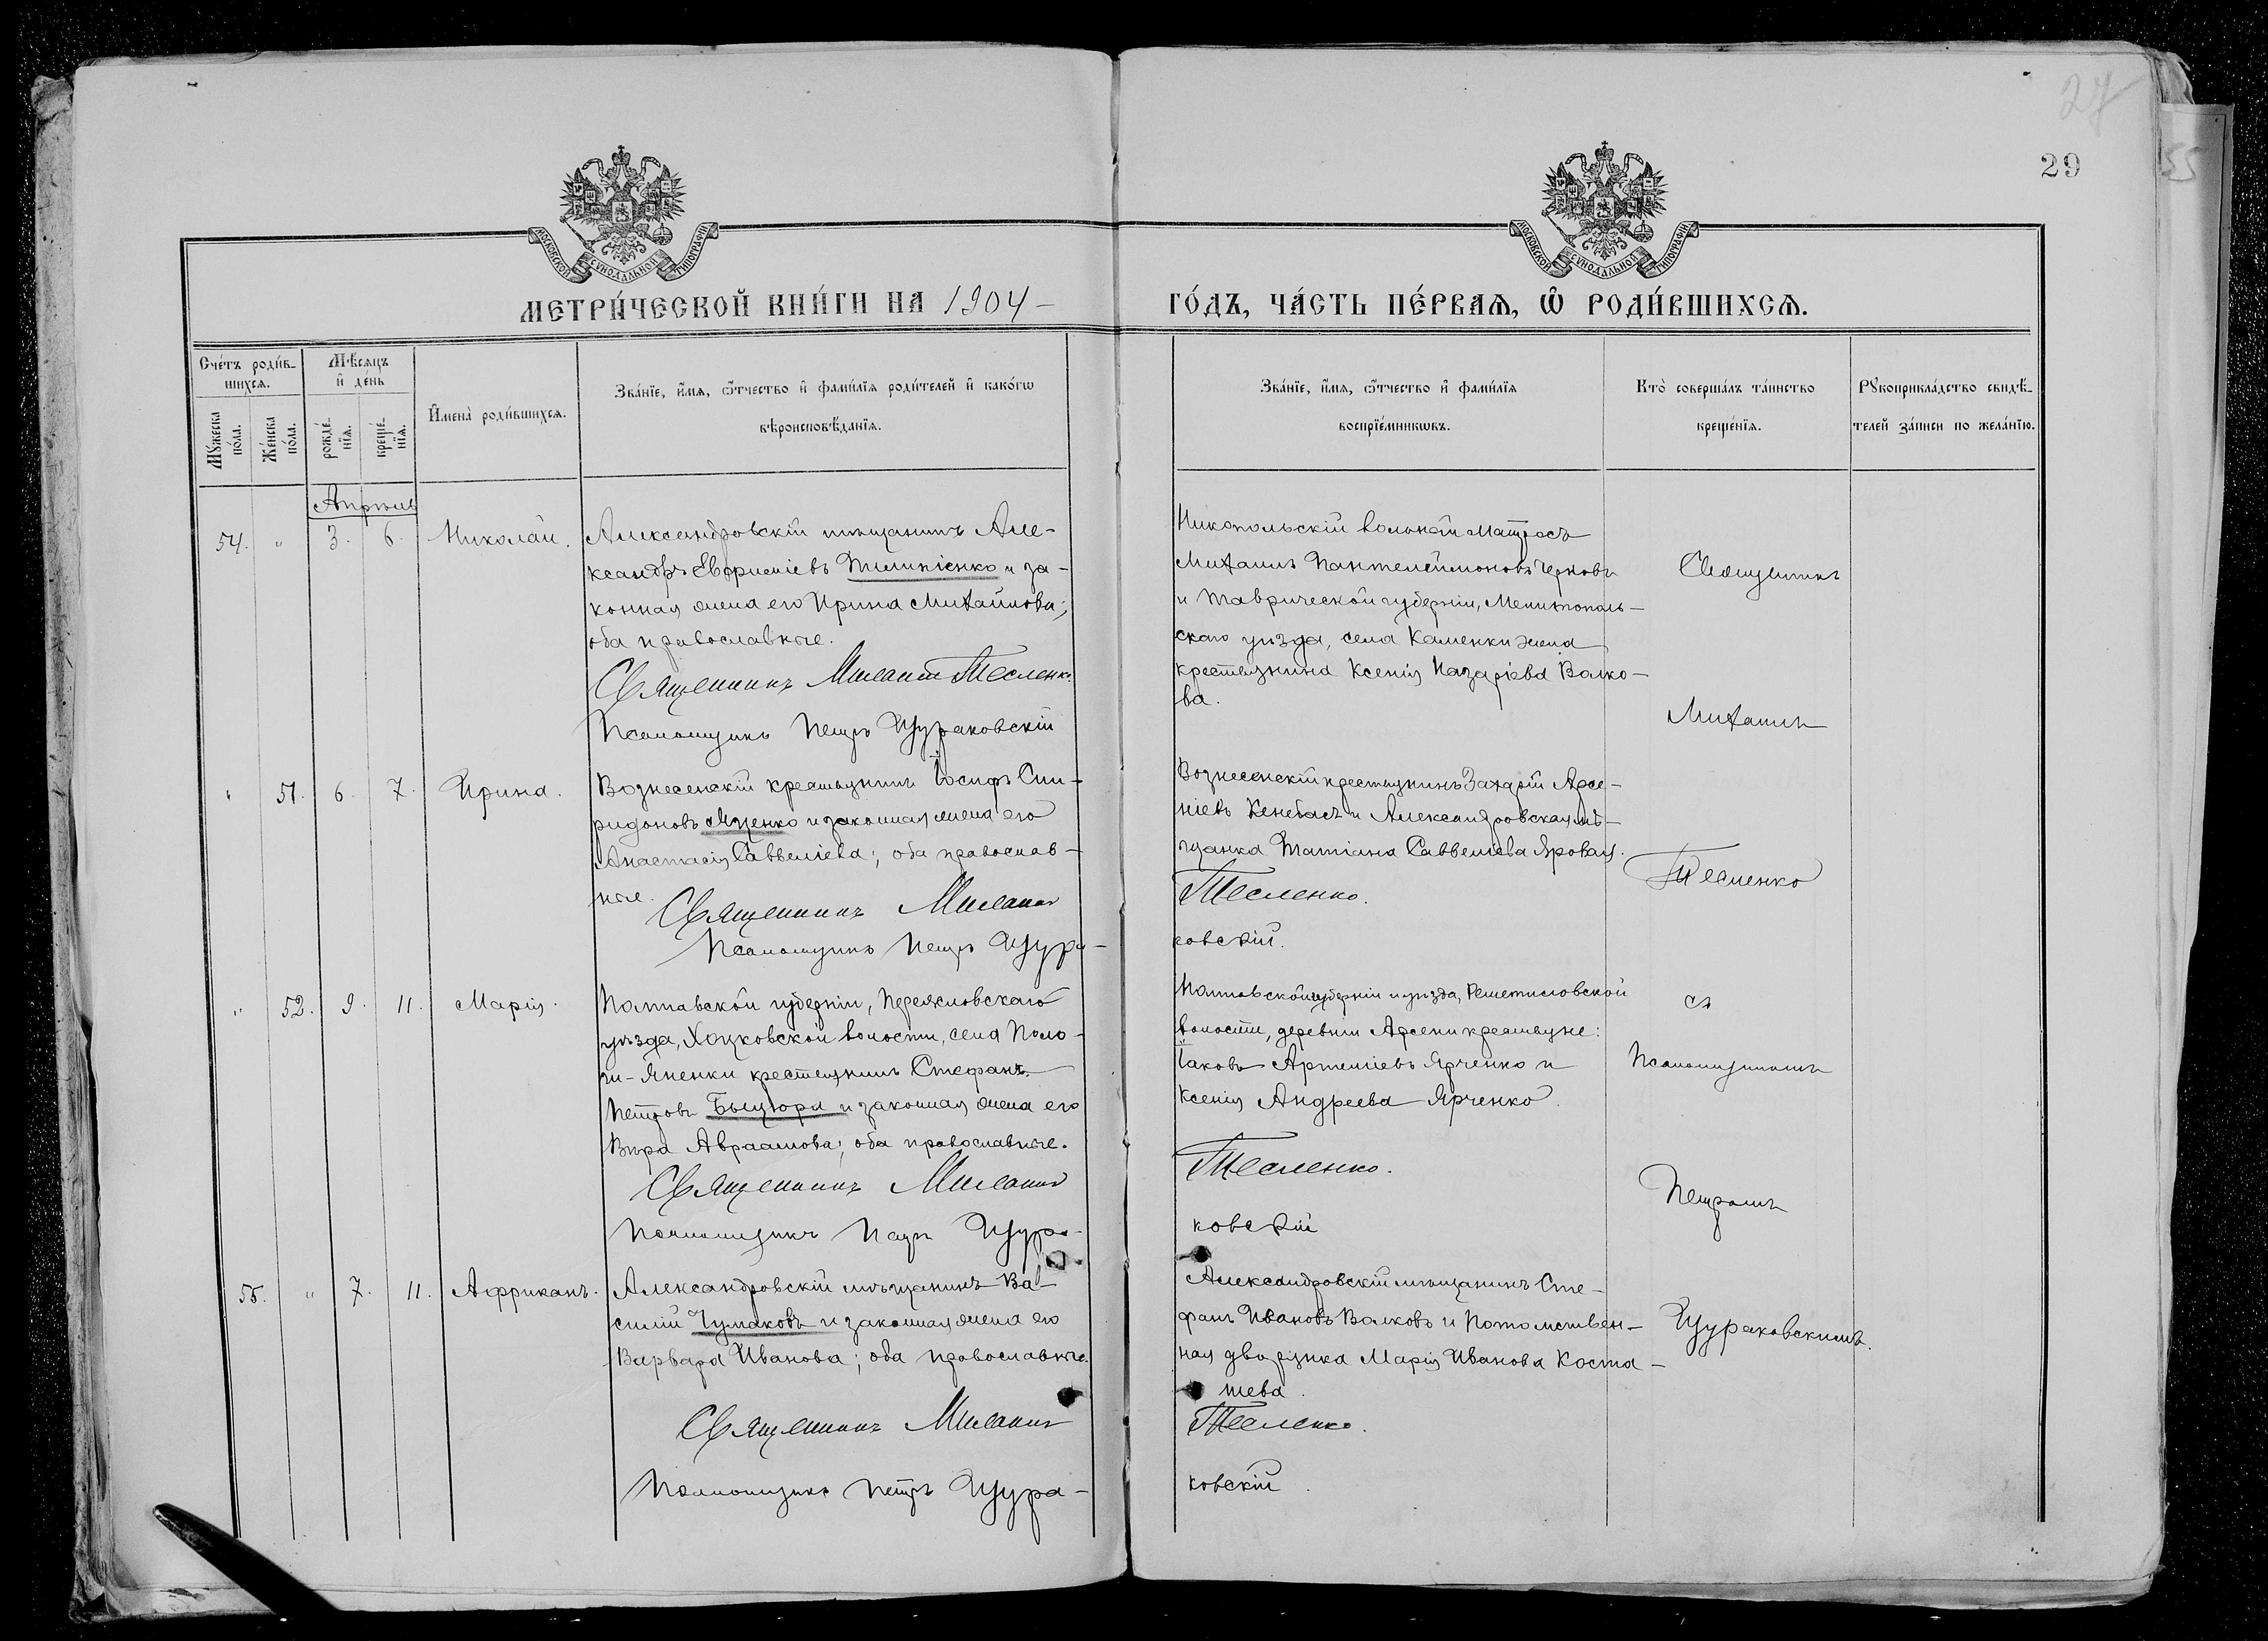 27
29
55
МОСКОВСКОЙ СѴНОДАЛЬНОЙ ТИПОГРАФІИ
МОСКОВСКОЙ СѴНОДАЛЬНОЙ ТИПОГРАФІИ
МЕТРИ́ЧЕСКОЙ КНИ́ГИ НА 1904 –
ГО́ДЪ, ЧА́СТЬ ПЕ́РВАѦ, Ѽ РОДИ́ВШИХСѦ.
Сче́тъ роди́в-
шихсѧ.
Мꙋ́жеска
по́ла.
Же́нска
по́ла.
Мѣ́сѧцъ
и҆ де́нь
рожде́-
нїѧ.
креще́-
нїѧ.
И҆мена̀ роди́вшихсѧ.
Зва́нїе, и҆́мѧ, ѻ҆́тчество и҆ фами́лїѧ роди́телей и҆ како́гѡ
вѣроисповѣ́данїѧ.
Зва́нїе, и҆́мѧ, ѻ҆́тчество и҆ фами́лїѧ
воспрїе́мникѡвъ.
Кто̀ соверша́лъ та́инство
креще́нїѧ.
Рꙋкоприкла́дство свидѣ́-
телей за́писи по жела́нїю.
Апрѣль
54. " 3. 6. Николай.
Александровскій мѣщанинъ Але-
ксандръ Евфиміевъ Пилипенко и за-
конная жена его Ирина Михайлова;
оба православные.
Священникъ Михаилъ Тесленко.
Псаломщикъ Петръ Щураковскій
Никопольскій вольный матросъ
Михаилъ Пантелеймоновъ Черновъ
и Таврической губерніи, Мелитополь-
скаго уѣзда, села Каменки жена
крестьянина Ксенія Назаріева Волко-
ва.
" 51. 6. 7. Ирина.
Вознесенскій крестьянинъ Іосифъ Спи-
ридоновъ Яценко и законная жена его
Анастасія Саввеліева; оба православ-
ные.
Священникъ Михаилъ
Псаломщикъ Петръ Щура-
Вознесенскій крестьянинъ Захарій Арсе-
ніевъ Кенебасъ и Александровская мѣ-
щанка Татіана Саввеліева Яровая.
Тесленко.
ковскій.
" 52. 9. 11. Марія.
Полтавской губерніи, Переяславскаго
уѣзда, Хоцковской волости, села Поло-
ги-Яненки крестьянинъ Стефанъ
Петровъ Быцюра и законная жена его
Вѣра Авраамова; оба православные.
Священникъ Михаилъ
Псаломщикъ Петръ Щура-
Полтавской губерніи и уѣзда, Решетиловской
волости, деревни Арсени крестьяне:
Іаковъ Артеміевъ Ярченко и
Ксенія Андреева Ярченко.
Тесленко.
ковскій
55. " 7. 11. Африканъ.
Александровскій мѣщанинъ Ва-
силій Чумаковъ и законная жена его
Варвара Иванова; оба православные.
Священникъ Михаилъ
Псаломщикъ Петръ Щура-
Александровскій мѣщанинъ Сте-
фанъ Ивановъ Волковъ и Потомствен-
ная дворянка Марія Иванова Коста-
Тесленко.
ковскій.
Священникъ
Михаилъ
Тесленко
съ
Псаломщикомъ
Петромъ
Щураковскимъ.